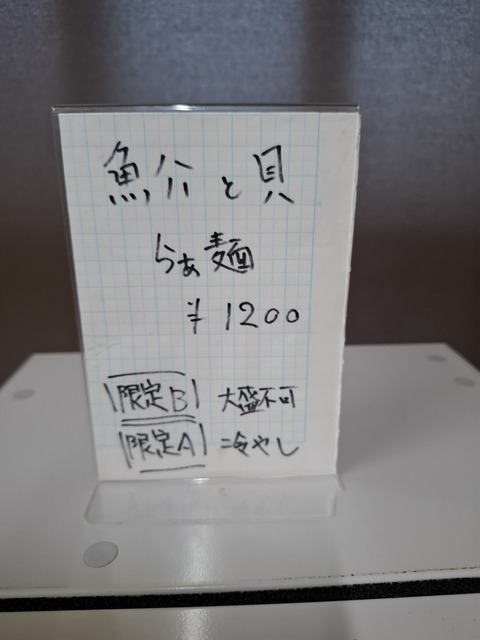 魚介と貝
らぁ麺
¥1200
限定B 大盛不可
限定A 冷やし